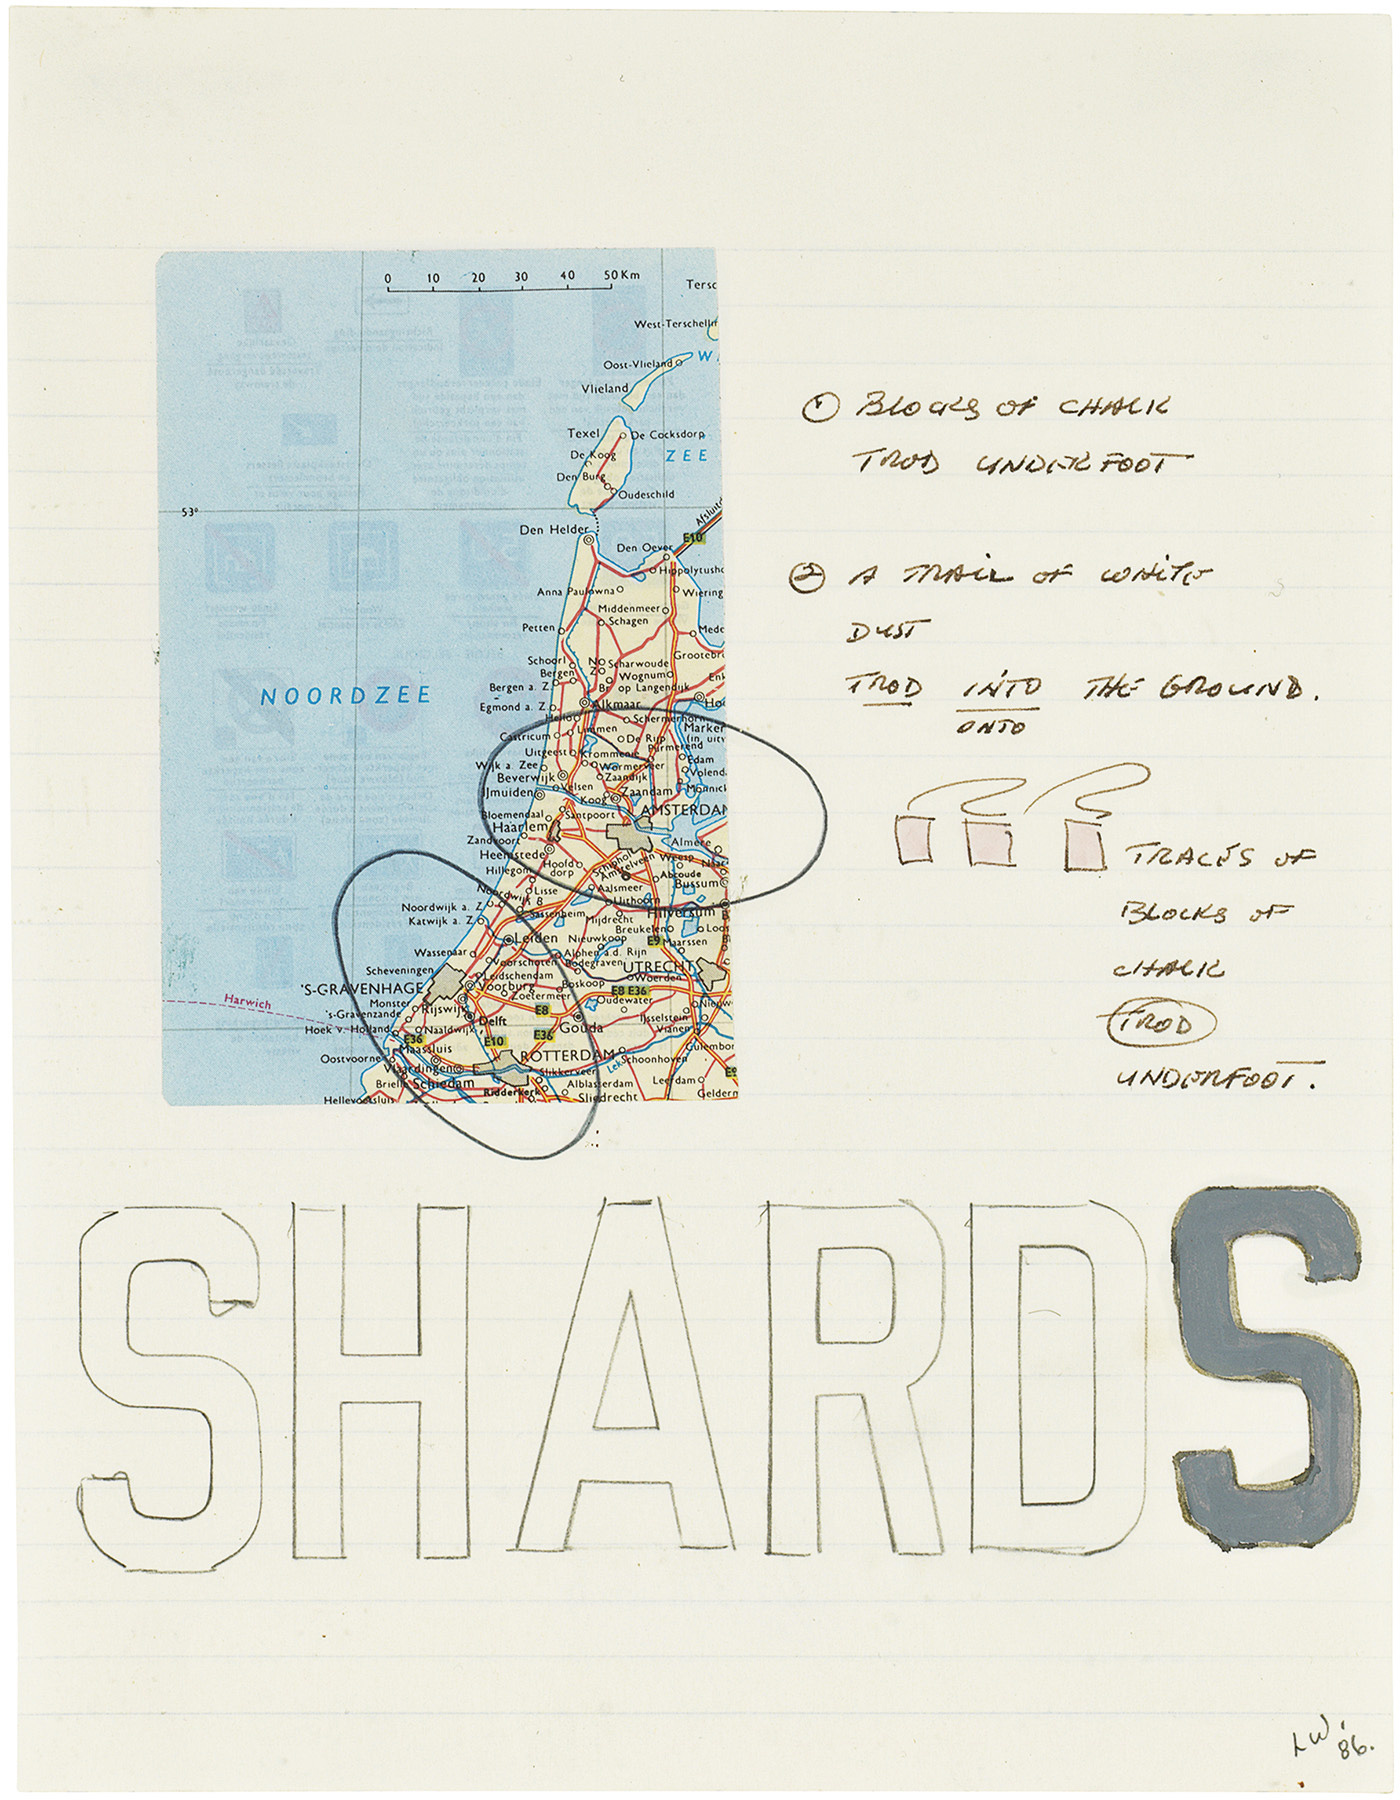 0 10 20 30 40 50 Km
Tersc
West-Terschellin
W
Oost-Vlieland
Vlieland
Texel De Cocksdorp
De Koog
ZEE
Den Burg
Oudeschild
53°
Den Helder
Afsluit
E10
Den Oever
Hippolytush
Anna Paulowna
Wiering
Middenmeer
Schagen
Petten
Mede
Schoorl
Scharwoude
Grootebr
Bergen
Wognum
Enk
Bergen a. Z.
Br. op Langendijk
NOORDZEE
Egmond a. Z.
Alkmaar
Hoo
Heilo
Schermerhorn
Limmen
Marker
(in uitv
Castricum
De Rijp
Purmerend
Uitgeest
Krommenie
Edam
Wijk a. Zee
Wormerveer
Volend
Beverwijk
Zaandijk
Velsen
Monnick
IJmuiden
Koog
Zaandam
Bloemendaal
Santpoort
AMSTERDAM
Haarlem
Zandvoort
Almere
Heemstede
Schiphol
Amstelveen
Weesp
Naar
Hillegom
Hoofd
dorp
Abcoude
Bussum
Lisse
Aalsmeer
Noordwijk B
Uithoorn
Noordwijk a. Z.
Sassenheim
Mijdrecht
Hilversum
Katwijk a. Z.
Breukelen
Loos
Leiden
Nieuwkoop
E9
Maarssen
Wassenaar
Alphen a.d. Rijn
Voorschoten
Bodegraven
UTRECHT
Scheveningen
Leidschendam
Woerden
'S-GRAVENHAGE
Voorburg
Boskoop
E8 E36
Zoetermeer
Oudewater
Harwich
Monster
Rijswijk
E8
Nieuw
's-Gravenzande
Delft
Gouda
IJsselstein
Hoek v. Holland
Naaldwijk
Vianen
E36
E10
E36
Maassluis
ROTTERDAM
Culembor
Oostvoorne
Schoonhoven
Vlaardingen
Slikkerveer
Lek
E9
Brielle
Schiedam
Alblasserdam
Leerdam
Hellevoetsluis
Ridderkerk
Sliedrecht
Geldern
① BLOCKS OF CHALK
TROD UNDERFOOT
② A TRAIL OF WHITE
DUST
TROD INTO THE GROUND.
ONTO
TRACES OF
BLOCKS OF
CHALK
TROD
UNDERFOOT.
SHARDS
LW '86.